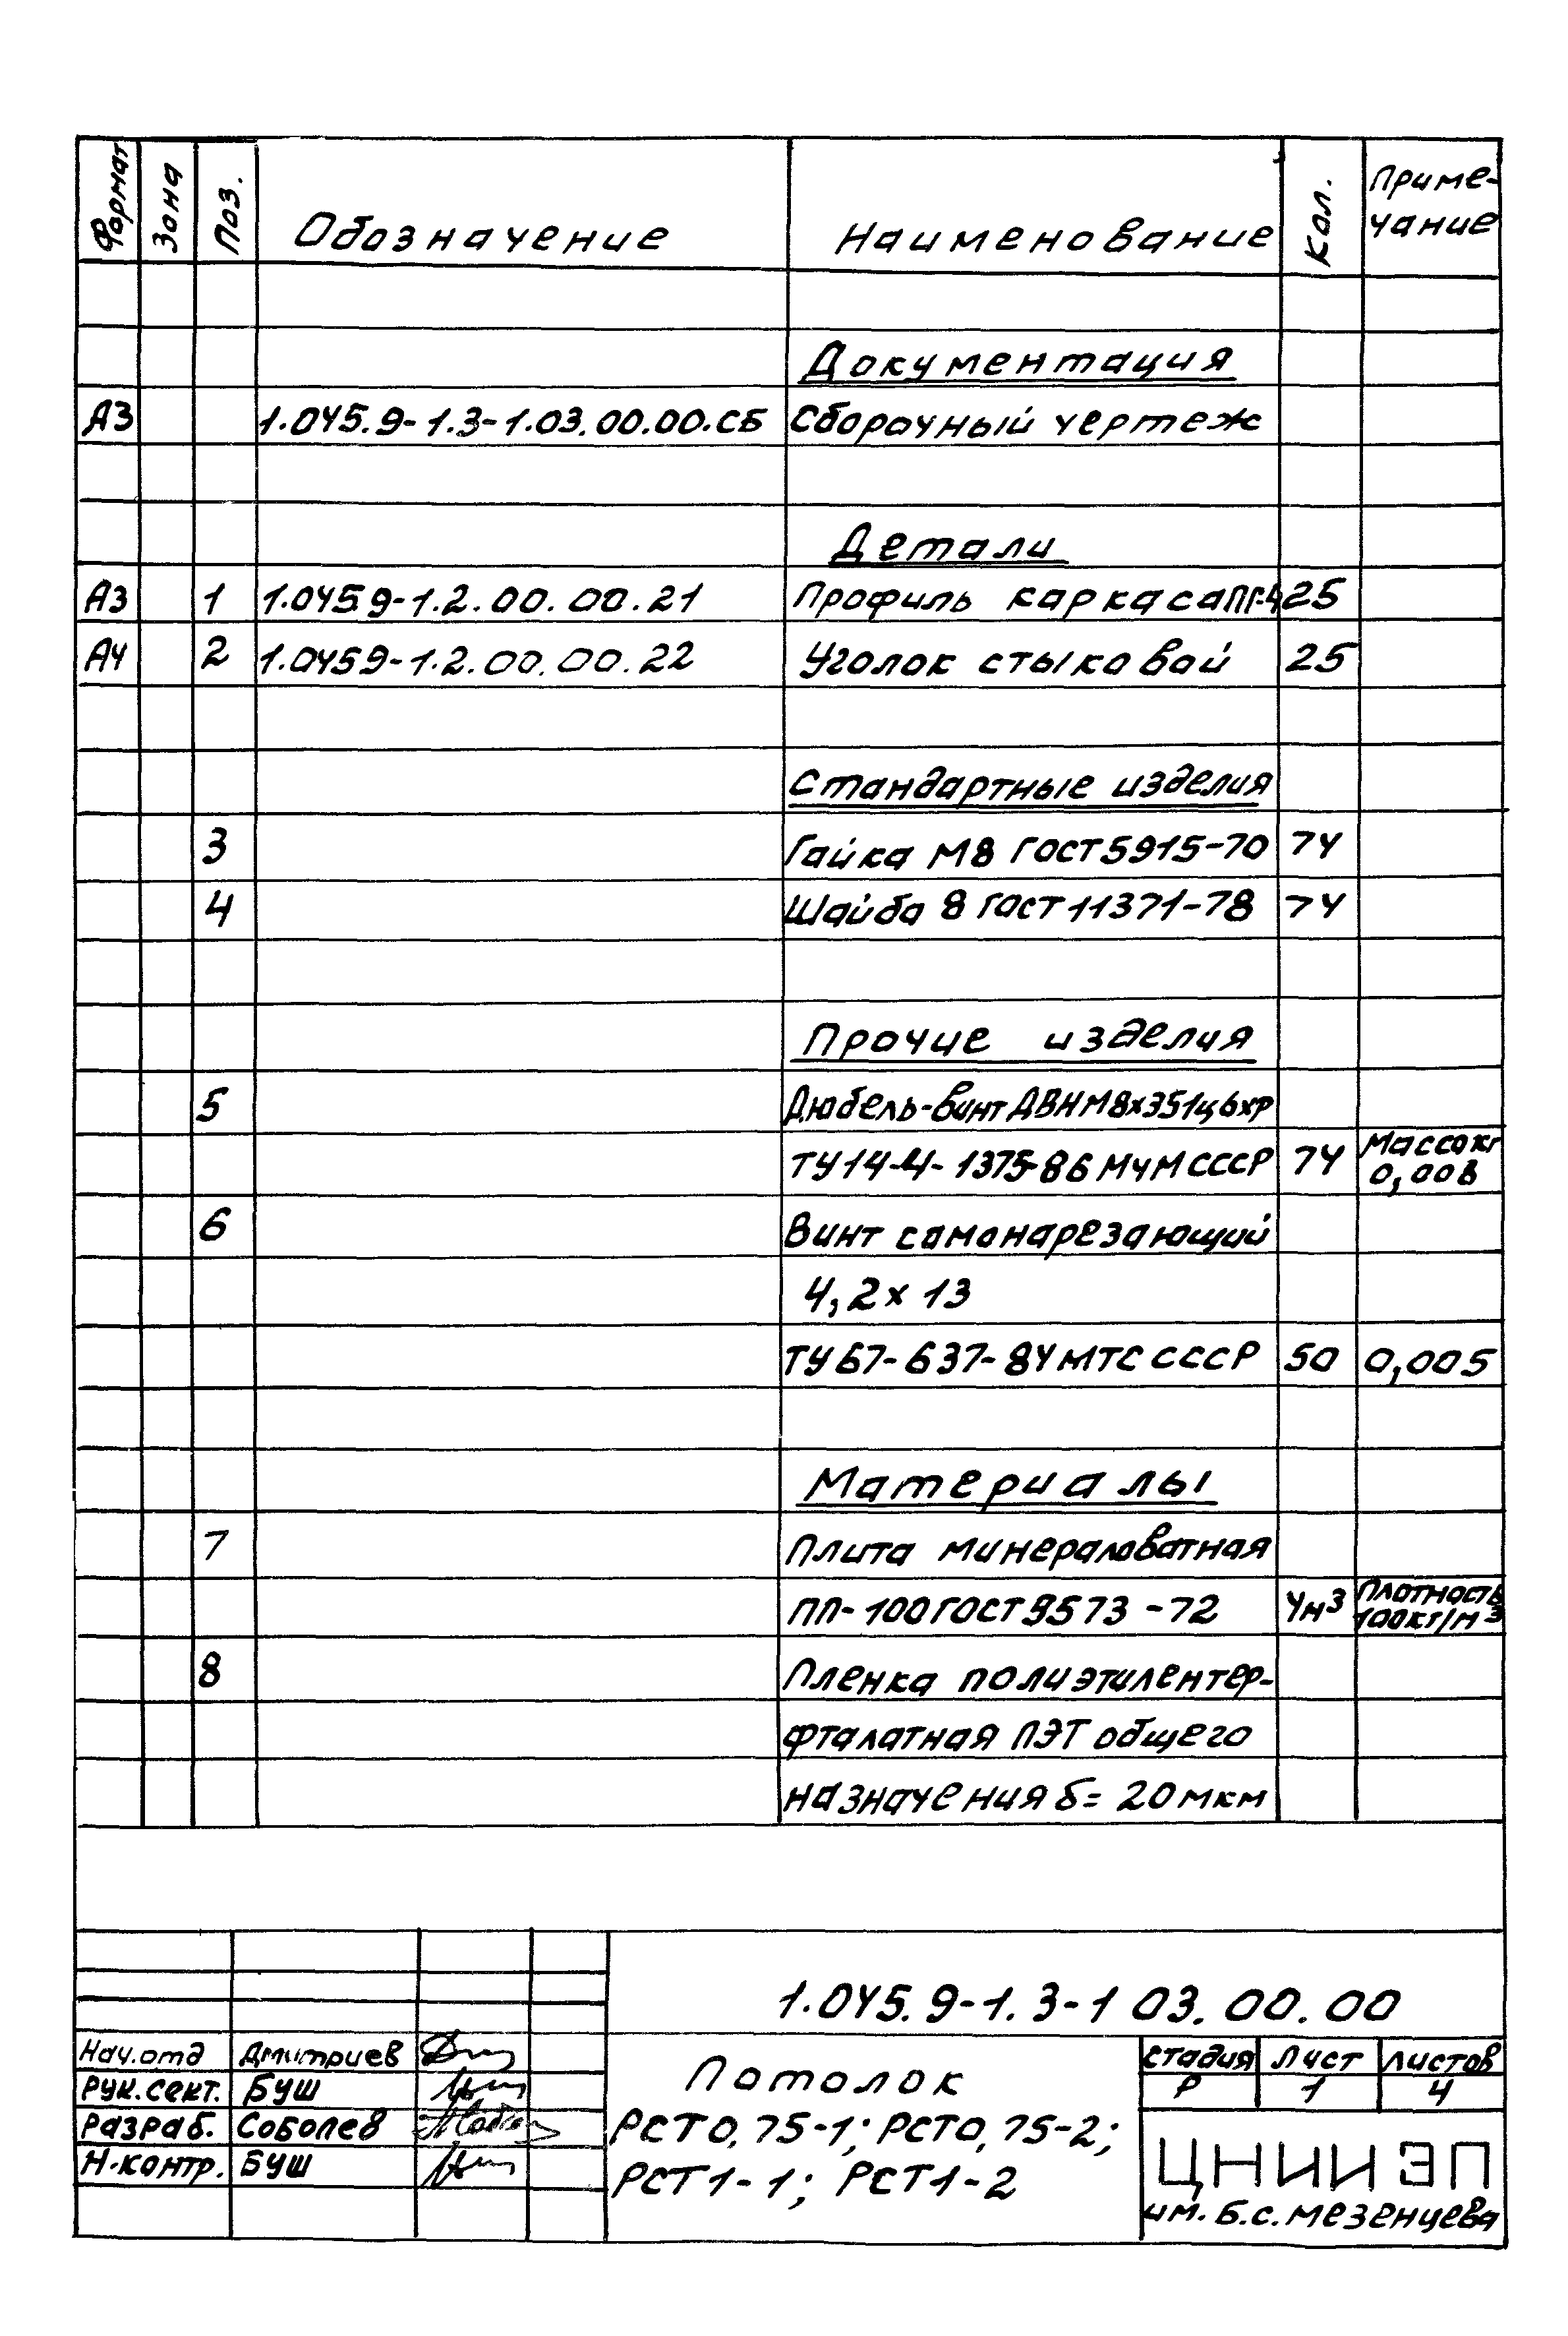 Формат Зона Поз. Обозначение Наименование Кол. Приме-
чание
Документация
А3 1.045.9-1.3-1.03.00.00.СБ Сборочный чертеж
Детали
А3 1 1.045.9-1.2.00.00.21 Профиль каркаса ПГ-4 25
А4 2 1.045.9-1.2.00.00.22 Уголок стыковой 25
Стандартные изделия
3 Гайка М8 ГОСТ 5915-70 74
4 Шайба 8 ГОСТ 11371-78 74
Прочие изделия
5 Дюбель-винт ДВН М8х35 1ц 6хр
ТУ 14-4-1375-86 МЧМ СССР 74 Масса кг
0,008
6 Винт самонарезающий
4,2х13
ТУ 67-637-84 МТС СССР 50 0,005
Материалы
7 Плита минераловатная
ПП-100 ГОСТ 9573-72 4м3 Плотность
100кг/м3
8 Пленка полиэтилентер-
фталатная ПЭТ общего
назначения б=20мкм
1.045.9-1.3-1 03.00.00
Нач.отд Дмитриев
Рук.сект. Буш
Разраб. Соболев
Н.контр. Буш
Потолок
РСТ0,75-1; РСТ0,75-2;
РСТ1-1; РСТ1-2
стадия лист листов
Р 1 4
ЦНИИЭП
им. Б.С. Мезенцева